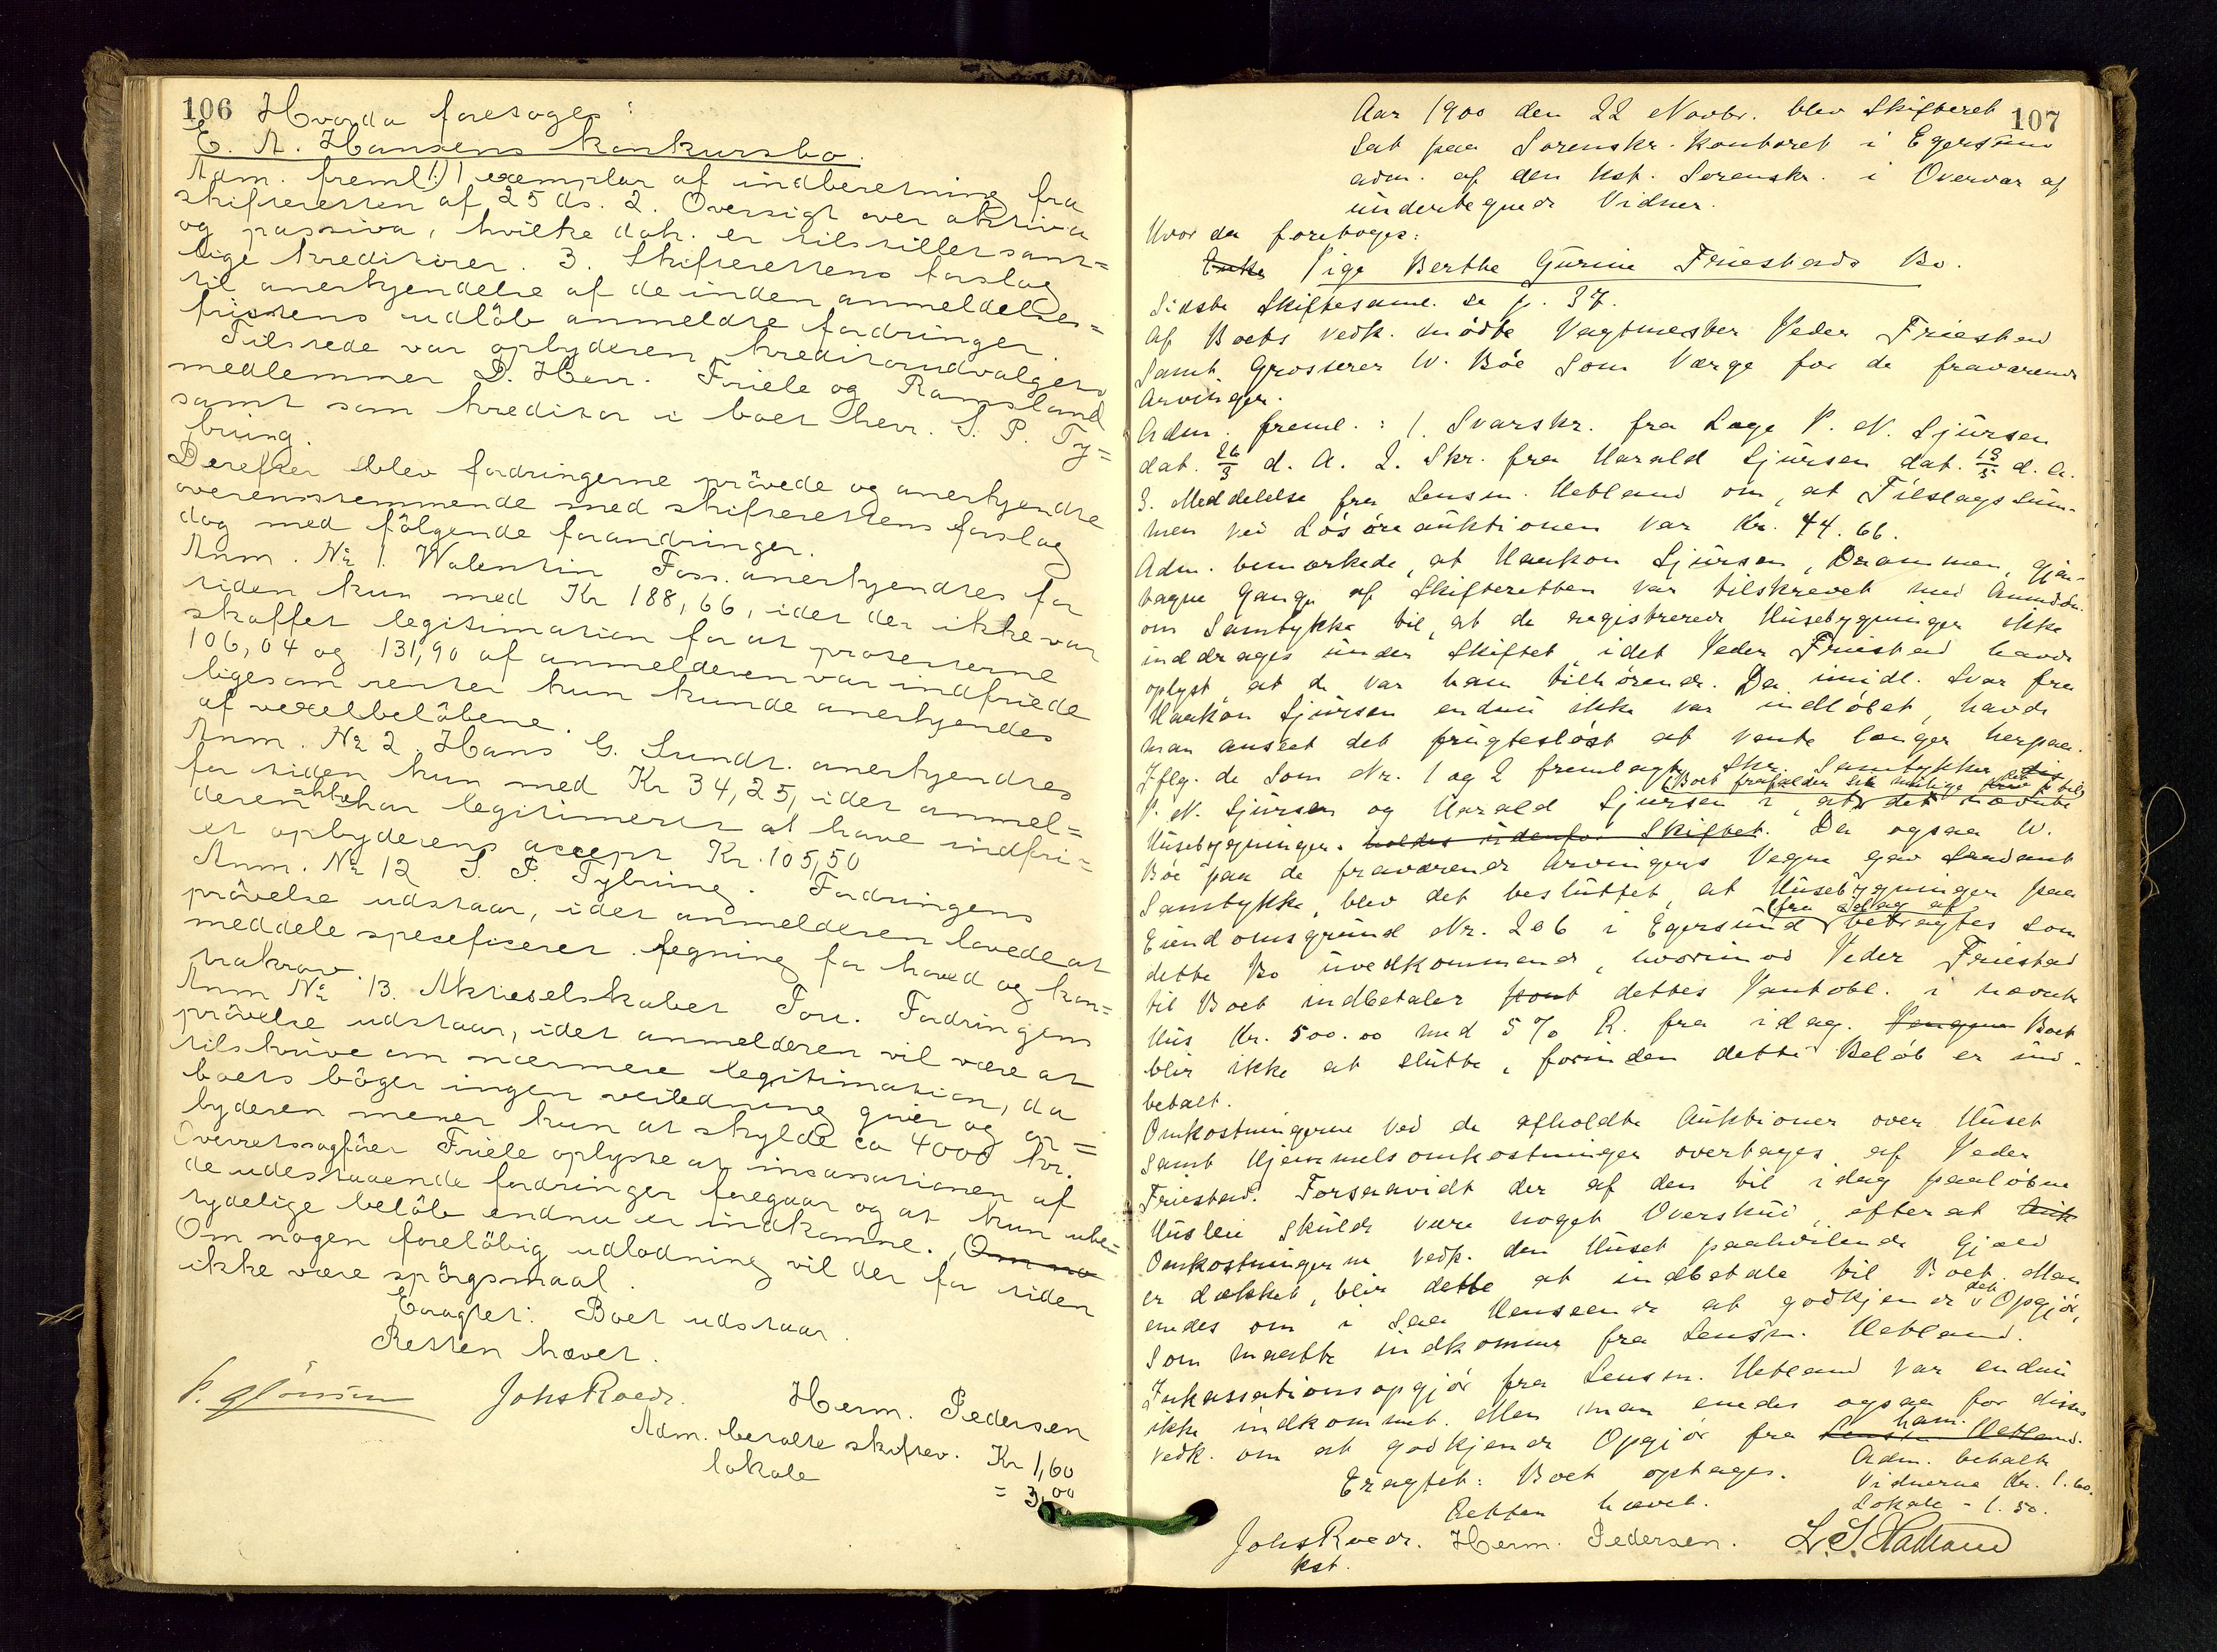 106 Hvorda foretoges:
E. A. Hansens konkursbo.
Adm. freml. 1) 1 exemplar af indberetning fra
skifteretten af 25 ds. 2. Oversigt over aktiva
og passiva, hvilke dok. er tilstillet samt=
lige kreditorer. 3. Skifterettens forslag
til anerkjendelse af de inden anmeldelses=
fristens udløb anmeldte fordringer.
Tilstede var opbyderen, kreditorudvalgets
medlemmer D. Herr. Friele og Ramsland
samt som kreditor i boet herr. S. P. Ty=
bring.
Derefter blev fordringerne prövede og anerkjendte
overensstemmende med skifterettens forslag
dog med fölgende forandringer.
Anm. No 1. Walentin Foss. anerkjendtes for
tiden kun med Kr 188,66, idet der ikke var
skaffet legitimation for at protesterne
106,04 og 131,90 af anmelderen var indfriede
ligesom renter kun kunde anerkjendes
af vexelbelöbene.
Anm. No 2. Hans G. Lundt. anerkjendtes
for tiden kun med Kr 34,25, idet anmel=
deren ikke har legitimeret at have indfri=
et opbyderens accept Kr. 105,50
Anm. No 12 S. P. Tybring. Fordringens
prövelse udstaar, idet anmelderen lovede at
meddele spesefiseret regning for hoved og kon=
trakrav.
Anm No 13. Aktieselskabet Tou. Fordringens
prövelse udstaar, idet anmelderen vil være at
tilskrive om nærmere legitimation, da
boets böger ingen veiledning giver og op=
byderen mener kun at skylde ca 4000 kr.
Overretssagförer Friele oplyste at incassationen af
de udestaaende fordringer foregaar og at kun ube=
tydelige belöb endnu er indkomne. Om no
Om nogen foreløbig udlodning vil der for tiden
ikke være spörgsmaal.
Eragtet: Boet udstaar.
Retten hævet.
JohsRoedr. Herm. Pedersen
Adm. betalte skiftev. Kr 1,60
lokale = 3,00
107
Aar 1900 den 22 Novbr. blev Skifteret
sat paa Sorenskr. kontoret i Egersund
adm. af den kst. Sorenskr. i Overvær af
undertegnede Vidner.
Hvor da foretoges:
Enke Pige Berthe Gurine Friestads Bo.
Sidste Skiftesaml. se p. 37.
Af Boets vedk. mödte Vagtmester Peder Friestad
samt Grosserer W. Böe som Værge for de fraværende
Arvinger.
Adm. freml.: 1. Svarskr. fra Læge P. N. Sjursen
dat. 26/3 d. A. 2. Skr. fra Harald Sjursen dat. 19/3 d. A.
3. Meddelelse fra Lensm. Hetland om, at Tilslagssum-
men ved Lösöreauktionen var Kr. 44.66.
Adm. bemærkede, at Haakon Sjursen, Drammen, gjen-
tagne Gange af Skifteretten var tilskrevet med Anmodn.
om Samtykke til, at de registrerede Husebygninger ikke
inddrages under Skiftet, idet Peder Friestad havde
oplyst, at de var ham tilhörende. Da imidl. Svar fra
Haakon Sjursen endnu ikke var indlöbet, havde
man anseet det frugteslöst at vente længer herpaa.
Iflg. de som Nr. 1 og 2 fremlagte Skr. samtykker
Boet frafalder sit mulige Krav til
P. N. Sjursen og Harald Sjursen i, at det nævnte
Husebygninger. holdes udenfor Skiftet. Da ogsaa W.
Böe paa de fraværende Arvingers Vegne gav saadant
Samtykke, blev det besluttet, at Husebygningen paa
fra idag af
Eiendomsgrund Nr. 206 i Egersund betragtes som
dette Bo uvedkommende, hvorimod Peder Friestad
til Boet indbetaler dettes Pantobl. i nævnte
Hus Kr. 500.00 med 5% R. fra idag. Pengene Boet
blir ikke at slutte, forinden dette Belöb er ind-
betalt.
Omkostningerne ved de afholdte Auktioner over Huset
samt Hjemmelsomkostninger overtages af Peder
Friestad. Forsaavidt der af den til idag paalöbne
Husleie skulde være noget Overskud, efterat
Omkostningerne vedk. den Huset paahvilende Gjæld
er dækket, blir dette at indbetale til Boet. Man
enedes om i saa Henseende at godkjende det Opgjör,
som maatte indkomme fra Lensm. Hetland.
Inkassationsopgjör fra Lensm. Hetland var endnu
ikke indkommet. Men man enedes ogsaa for disses
ham.
vedk. om at godkjende Opgjör fra Lensm. Hetland.
Eragtet: Boet optages.
Adm. betalte
Vidnerne Kr. 1.60.
Lokale - 1.50.
Retten hævet.
JohsRoedr. Herm. Pedersen. L. S. Hadland
kst.